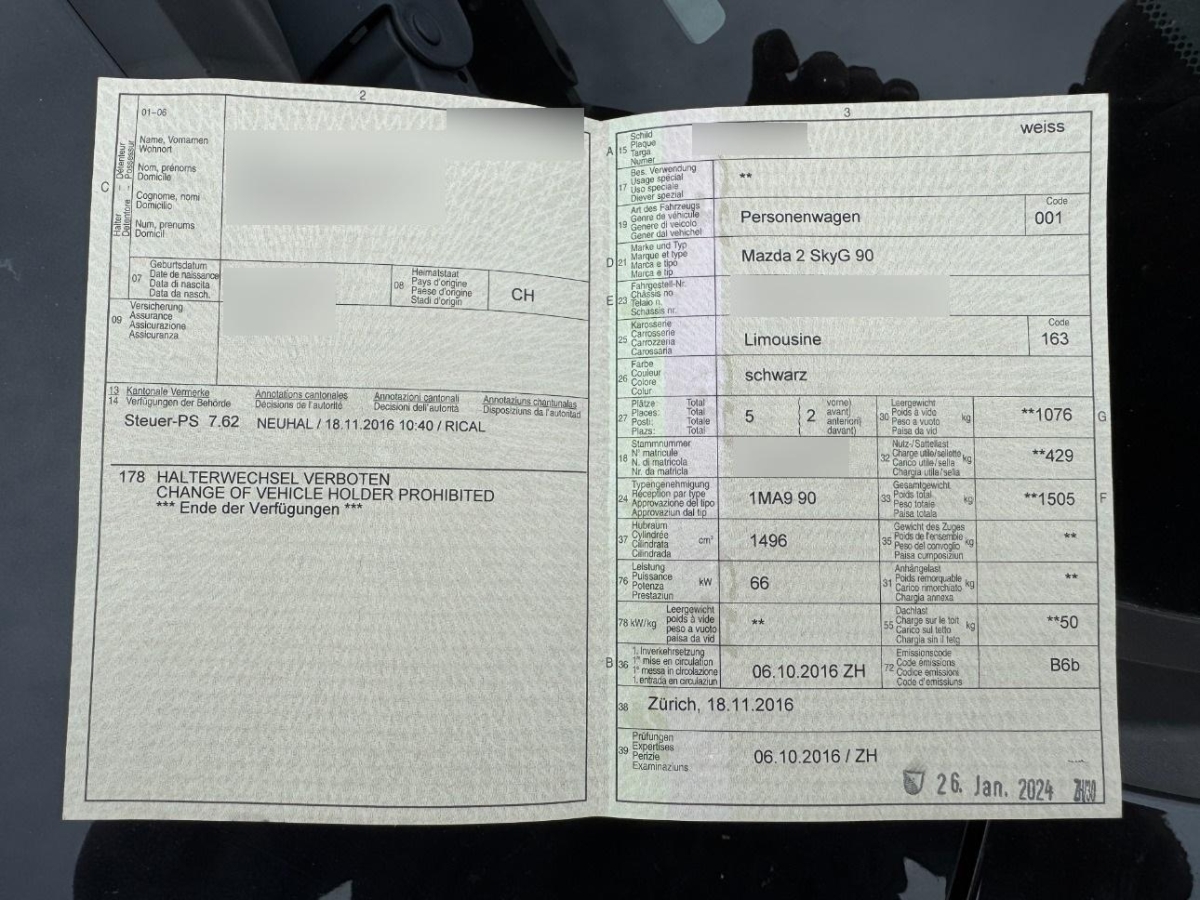 2
01–06
Name, Vornamen
Wohnort
Nom, prénoms
Domicile
Cognome, nomi
Domicilio
Num, prenums
Domicil
C
Halter – Détenteur
Detentore – Possessur
07
Geburtsdatum
Date de naissance
Data di nascita
Data da nasch.
08
Heimatstaat
Pays d'origine
Paese d'origine
Stadi d'origin
CH
09
Versicherung
Assurance
Assicurazione
Assicuranza
13
14
Kantonale Vermerke
Verfügungen der Behörde
Annotations cantonales
Décisions de l'autorité
Annotazioni cantonali
Decisioni dell'autorità
Annotaziuns chantunalas
Disposiziuns da l'autoritad
Steuer-PS 7.62 NEUHAL / 18.11.2016 10:40 / RICAL
178 HALTERWECHSEL VERBOTEN
CHANGE OF VEHICLE HOLDER PROHIBITED
*** Ende der Verfügungen ***
3
A 15
Schild
Plaque
Targa
Numer
weiss
17
Bes. Verwendung
Usage spécial
Uso speciale
Diever spezial
**
19
Art des Fahrzeugs
Genre de véhicule
Genere di veicolo
Gener dal vehichel
Personenwagen
Code
001
D 21
Marke und Typ
Marque et type
Marca e tipo
Marca e tip
Mazda 2 SkyG 90
E 23
Fahrgestell-Nr.
Châssis no
Telaio n.
Schassis nr.
25
Karosserie
Carrosserie
Carrozzeria
Carossaria
Limousine
Code
163
26
Farbe
Couleur
Colore
Colur
schwarz
27
Plätze: Total
Places: Total
Posti: Totale
Plazs: Total
5
vorne)
avant)
anteriori)
davant)
2
30
Leergewicht
Poids à vide
Peso a vuoto
Paisa da vid
kg
**1076
G
18
Stammnummer
N° matricule
N. di matricola
Nr. da matricla
32
Nutz-/Sattellast
Charge utile/sellette
Carico utile/sella
Chargia utila/sella
kg
**429
24
Typengenehmigung
Réception par type
Approvazione del tipo
Approvaziun dal tip
1MA9 90
33
Gesamtgewicht
Poids total
Peso totale
Paisa totala
kg
**1505
F
37
Hubraum
Cylindrée
Cilindrata
Cilindrada
cm³
1496
35
Gewicht des Zuges
Poids de l'ensemble
Peso del convoglio
Paisa cumposiziun
kg
**
76
Leistung
Puissance
Potenza
Prestaziun
kW
66
31
Anhängelast
Poids remorquable
Carico rimorchiato
Chargia annexa
kg
**
78 kW/kg
Leergewicht
poids à vide
peso a vuoto
paisa da vid
**
55
Dachlast
Charge sur le toit
Carico sul tetto
Chargia sin il tetg
kg
**50
B 36
1. Inverkehrsetzung
1re mise en circulation
1a messa in circolazione
1. entrada en circulaziun
06.10.2016 ZH
72
Emissionscode
Code émissions
Codice emissioni
Code d'emissiuns
B6b
38
Zürich, 18.11.2016
39
Prüfungen
Expertises
Perizie
Examinaziuns
06.10.2016 / ZH
26. Jan. 2024